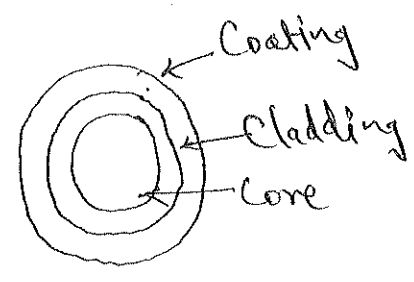 Coating
Cladding
Core